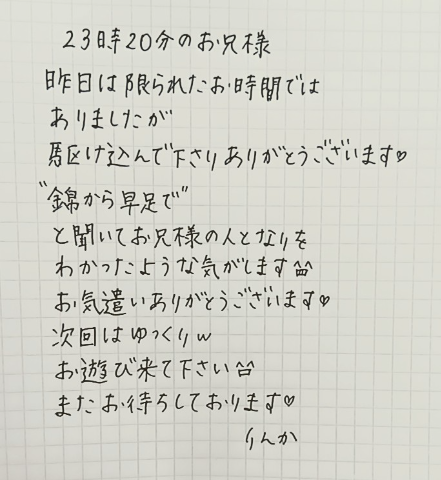 23時20分のお兄様
昨日は限られたお時間では
ありましたが
駆け込んで下さりありがとうございます♡
"錦から早足で"
と聞いてお兄様の人となりを
わかったような気がします^^
お気遣いありがとうございます♡
次回はゆっくりw
お遊び来て下さい^^
またお待ちしております♡
りんか